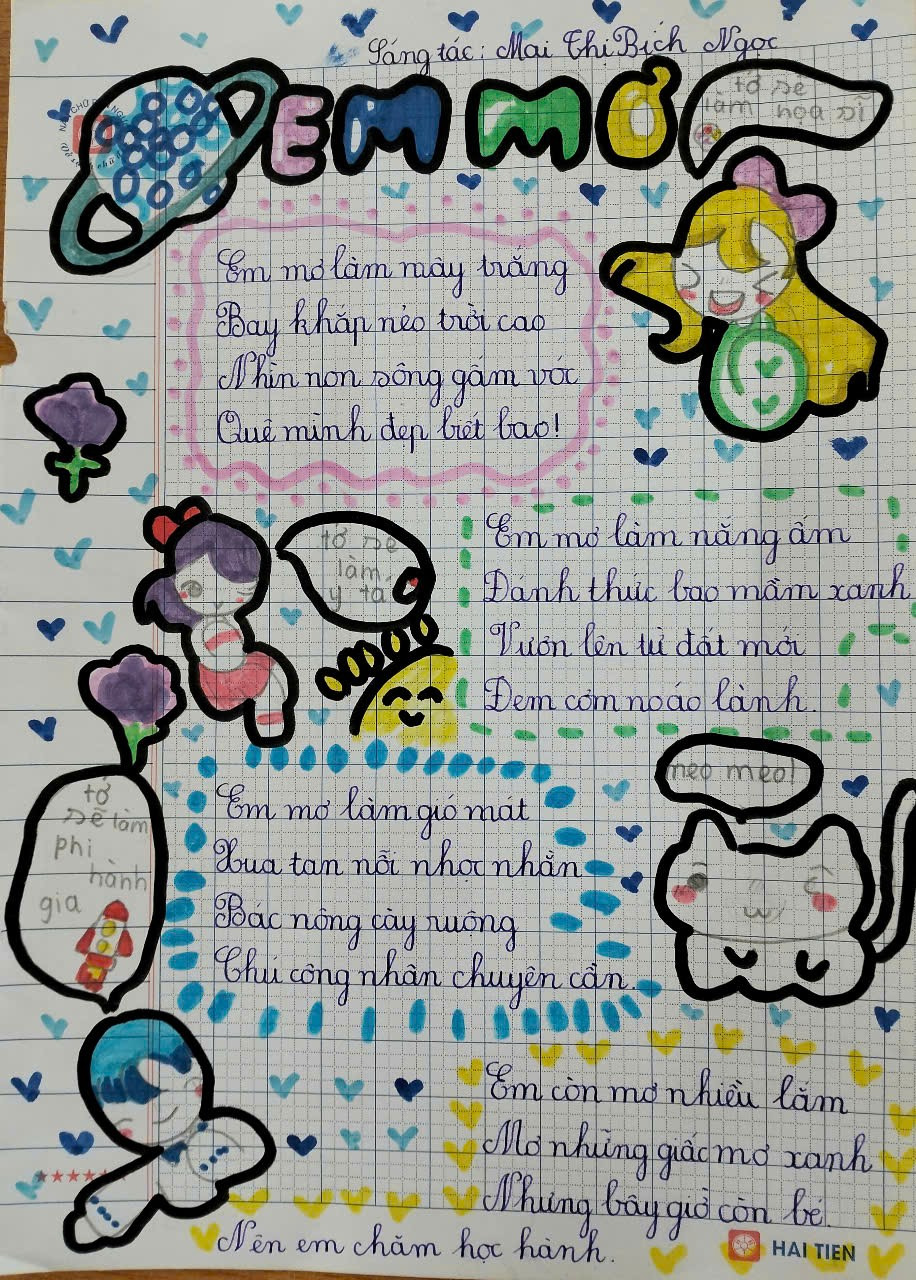 Sáng tác: Mai Thị Bích Ngọc
EM MƠ
tớ sẽ
làm họa sĩ
Em mơ làm mây trắng
Bay khắp nẻo trời cao
Nhìn non sông gấm vóc
Quê mình đẹp biết bao!
tớ sẽ
làm
y tá
Em mơ làm nắng ấm
Đánh thức bao mầm xanh
Vươn lên từ đất mới
Đem cơm no áo lành.
tớ
sẽ làm
phi
hành
gia
meo meo!
Em mơ làm gió mát
Xua tan nỗi nhọc nhằn
Bác nông cày ruộng
Chú công nhân chuyên cần.
Em còn mơ nhiều lắm
Mơ những giấc mơ xanh
Nhưng bây giờ còn bé
Nên em chăm học hành.
HAI TIEN